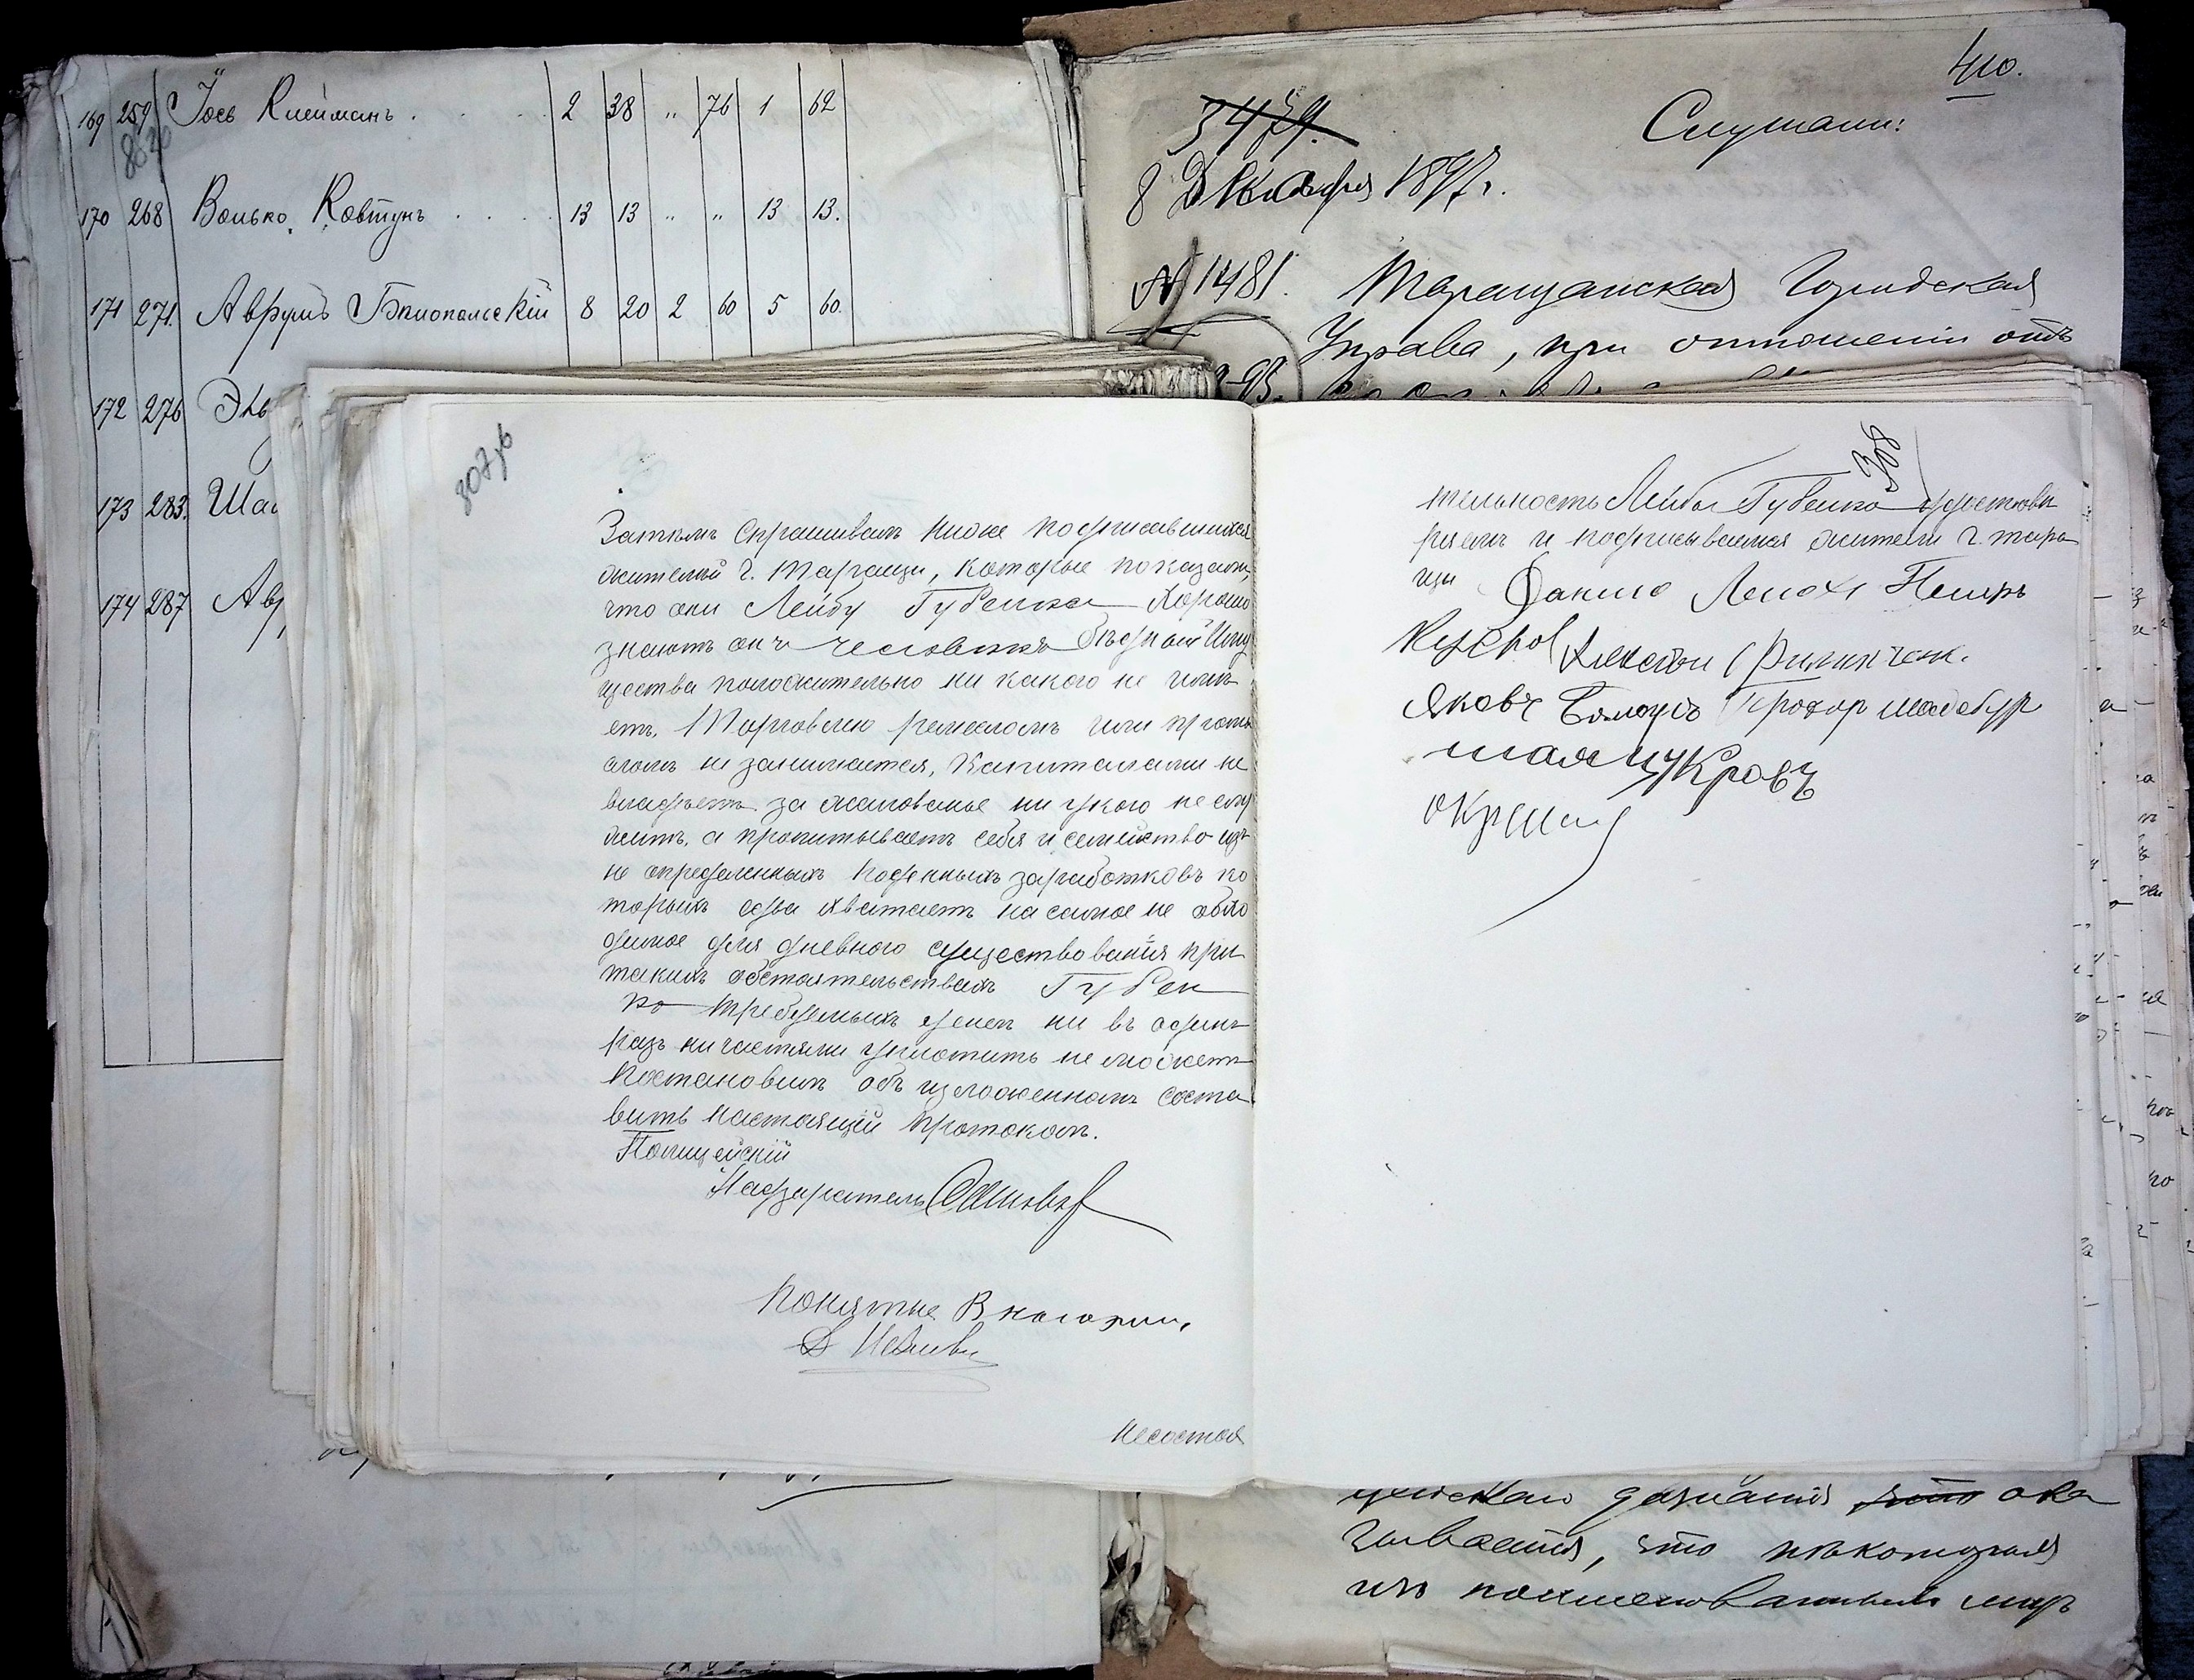 169 259 Іось Клейманъ . . . . 2 38 „ 76 1 62
170 268 Волько Ковтунъ . . . . 13 13 „ „ 13 13.
171 271. Аврумъ Бялопольскій 8 20 2 60 5 60.
172 276
173 283.
174 287
410.
3479.
Слушали:
8 Декабря 1897г.
№ 1481. Таращанская Городская
Управа, при отношеніи отъ
307об
Затемъ спрашивалъ ниже подписавшихся
жителей г. Таращи, которые показали,
что они Лейбу Губенка хорошо
знаютъ онъ человекъ бедный иму
щества положительно ни какого не име
етъ, Торговлею ремесломъ или промы
сломъ не занимается, Капиталами не
владеетъ за жалованье ни укого не слу
житъ, а пропитываетъ себя и семейство изъ
не определенныхъ поденныхъ заработковъ ко
торыхъ едва хватаетъ на самое не обхо
димое для дневного существованія при
такихъ обстоятельствахъ Губен
ко требуемыхъ денегъ ни въ одинъ
разъ ни частями уплотить не можетъ
Постановилъ объ изложенномъ соста
вить настоящій протоколъ.
Полицейскій
Надзиратель
Понятые
Несостоя
308
тельность Лейбы Губенка удостове
ряемъ и подписываемся жители г. Тара
щи
Яковъ Прохор
шая цукровъ
дознанія это ока
зывается, что некоторыя
изъ поименованныхъ